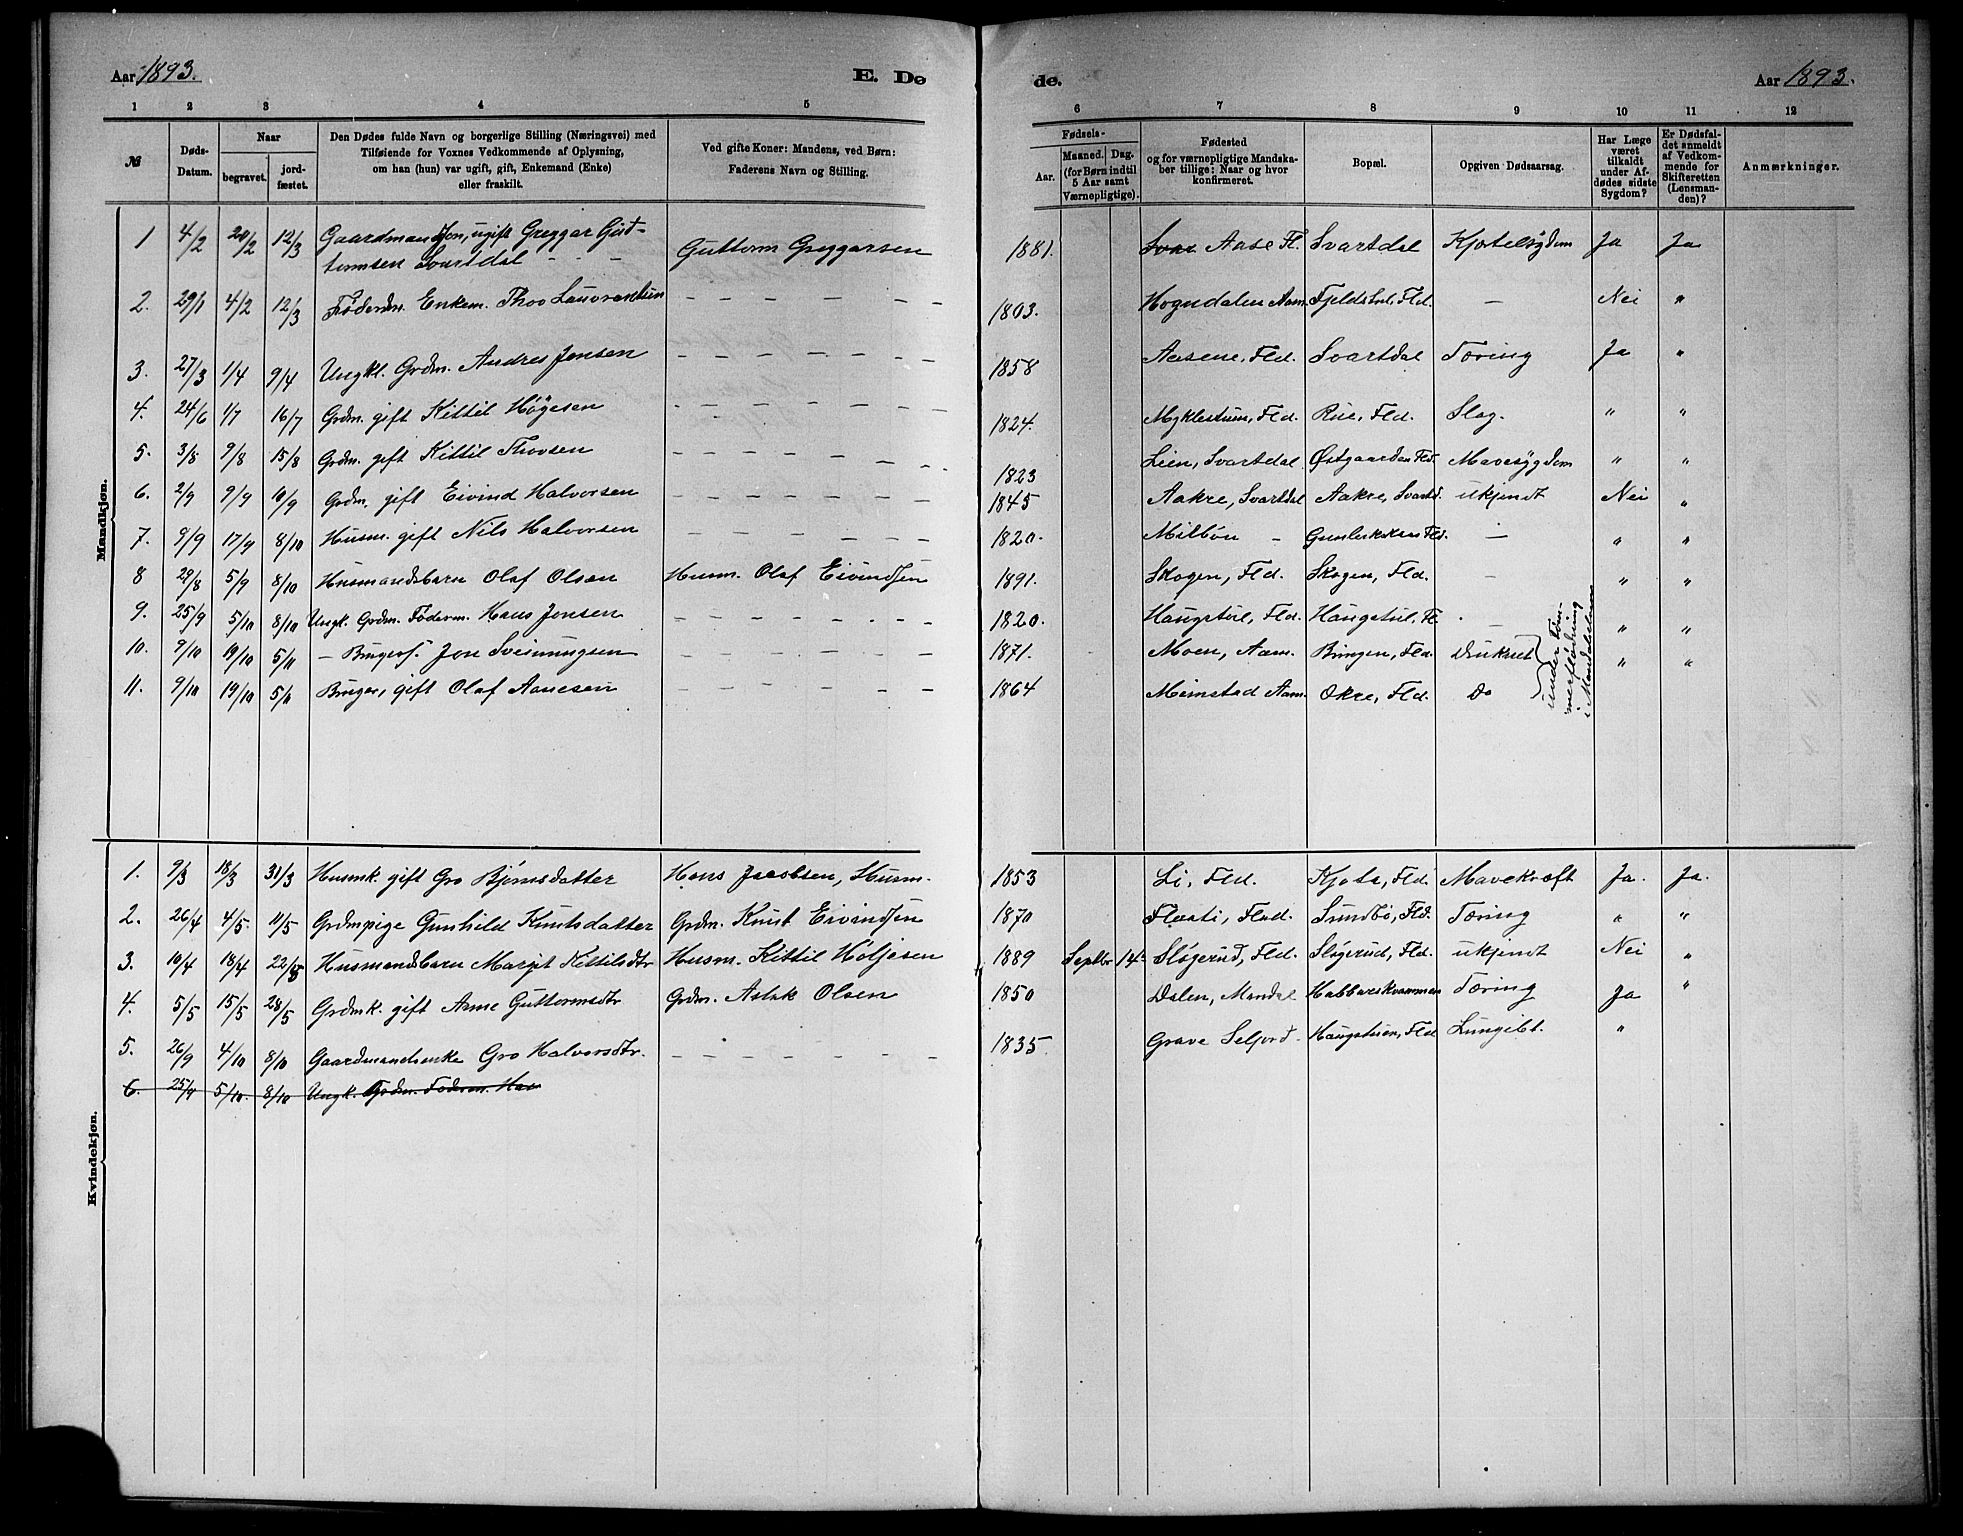 Aar 1893.
E. Dø
de.
Aar 1893.
1 2 3 4 5 6 7 8 9 10 11 12
№
Døds-
Datum.
Naar
begravet.
jord-
fæstet.
Den Dødes fulde Navn og borgerlige Stilling (Næringsvei) med
Tilføiende for Voxnes Vedkommende af Oplysning,
om han (hun) var ugift, gift, Enkemand (Enke)
eller fraskilt.
Ved gifte Koner: Mandens, ved Børn:
Faderens Navn og Stilling.
Fødsels-
Aar.
Maaned. Dag.
(for Børn indtil
5 Aar samt
Værnepligtige).
Fødested
og for værnepligtige Mandska-
ber tillige: Naar og hvor
konfirmeret.
Bopæl.
Opgiven Dødsaarsag.
Har Læge
været
tilkaldt
under Af-
dødes sidste
Sygdom?
Er Dødsfal-
det anmeldt
af Vedkom-
mende for
Skifteretten
(Lensman-
den)?
Anmærkninger.
Mandkjøn.
1 4/2 20/2 12/3 Gaardmandssøn, ugift Greggar Gut- Guttorm Greggarsen 1881. Svar Aase Fl. Svartdal Kjertelsygdom Ja Ja
tormsen Svartdal - - -
2. 29/1 4/2 12/3 Føderdm. Enkem. Thov Lauvrantsen - - - 1803. Hogndalen Aam. Fld. - Nei "
3. 27/3 1/4 9/4 Ungkl. Grdm. Andres Jonsen - - - 1858 Aasene, Fld. Svartdal Tæring Ja "
4. 24/6 1/7 16/7 Grdm. gift Kittil Høgesen - - - 1824. Myklestuen, Fld. Rue, Fld. Slag. " "
5. 3/8 9/8 15/8 Grdm. gift Kittil Thovsen - - - 1823 Lien, Svartdal Østgaarden Fld. Mavesygdom " "
6. 2/9 9/9 10/9 Grdm. gift Eivind Halvorsen - - - 1845 Aakre, Svartdal Aakre, Svartd. ukjendt Nei "
7. 9/9 17/9 8/10 Husm. gift Nils Halvorsen - - - 1820. Milbøn - Fld. - " "
8 29/8 5/9 8/10 Husmandsbarn Olaf Olsen Husm. Olaf Eivindsen 1891. Skogen, Fld. Skogen, Fld. - " "
9. 25/9 5/10 8/10 Ungk. Grdm. Føderm. Hans Jonsen - - - 1820. Haugstul, Fld. Haugstul, Fl. - " "
10. 9/10 19/10 5/11 - Brugerf. Jon Sveinungsen - - - 1871. Moen, Aam. Bringen, Fld. Druknet " "
11. 9/10 19/10 5/11 Bruger, gift Olaf Aanesen - - - 1864 Meinstad Aam. Okre, Fld. Do
under Tøm-
merflødning
i Mandalselven
Kvindekjøn.
1. 9/3 18/3 31/3 Husmk. gift Gro Bjørnsdatter Hans Jacobsen, Husm. 1853 Li, Fld. Kjota, Fld. Mavekræft Ja. Ja.
2. 26/4 4/5. 11/5 Grdmpige Gunhild Knutsdatter Grdm. Knut Eivindsen 1870 Flaati, Flad. Sundbø, Fld. Tæring " "
3. 10/4 18/4 22/5 Husmandsbarn Margit Kittilsdtr Husm. Kittil Høljesen 1889 Septbr 14. Sløgerud, Fld. Sløgerud, Fld. ukjendt Nei "
4. 5/5 15/5 28/5 Grdmk. gift Anne Guttormsdtr Grdm. Aslak Olsen 1850 Dalen, Mandal Tæring Ja "
5. 26/9 4/10 8/10 Gaardmandsenke Gro Halvorsdtr. - - - 1835. Grave Seljord. Haugstuen, Fld. Lungebt. "
6. 25/9 5/10. 8/10 Ungk. Grdm. Føderm. Han